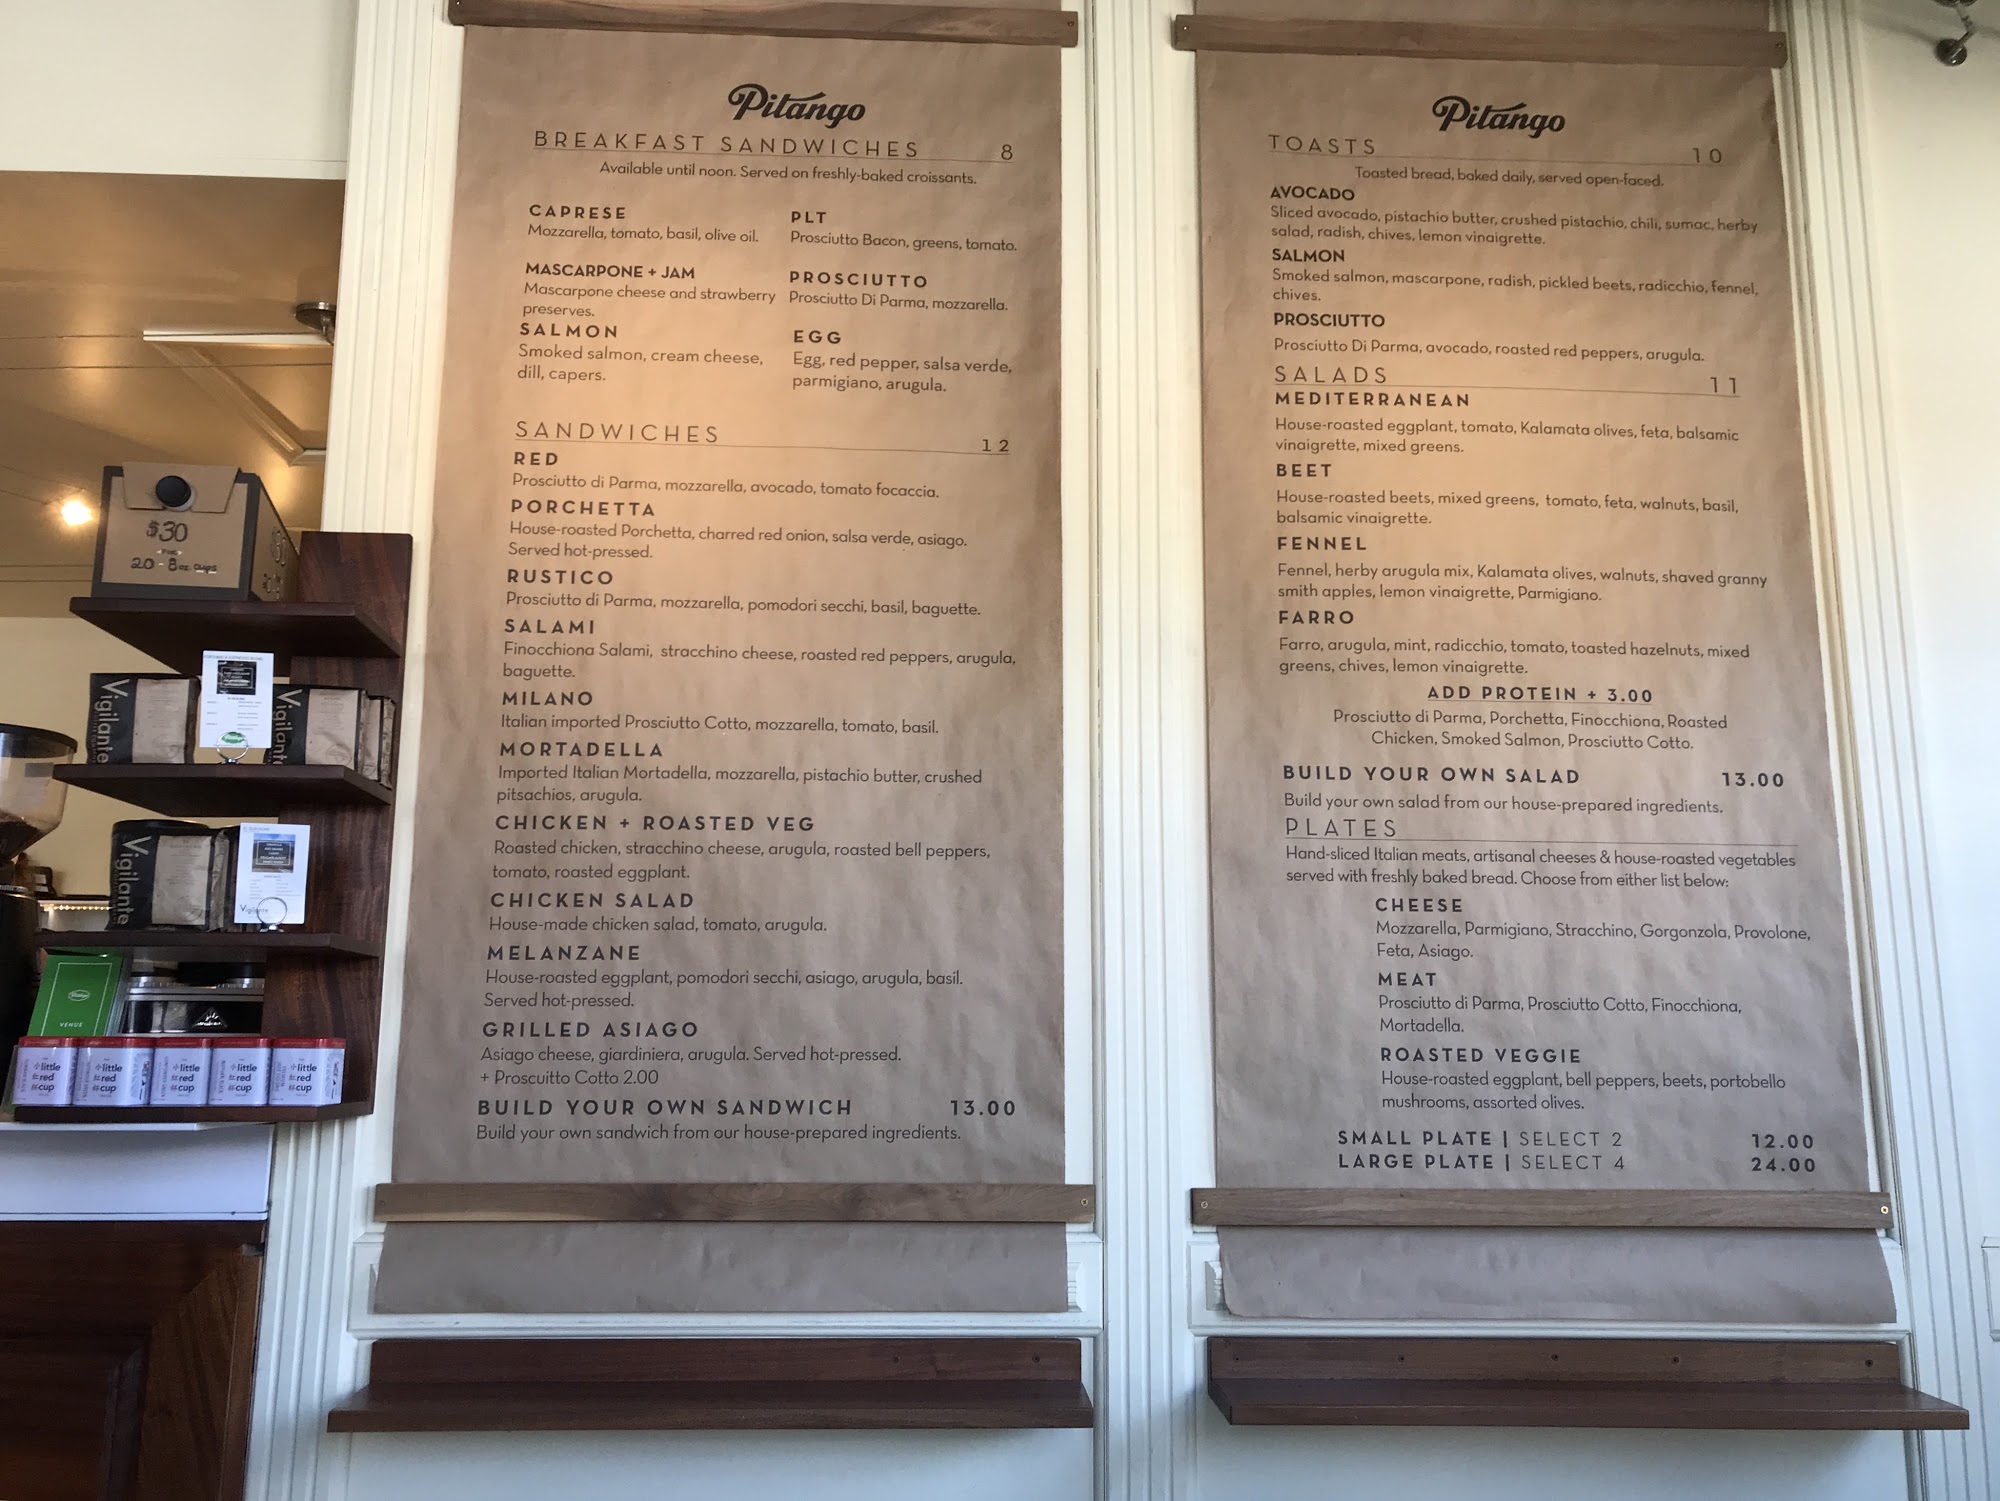 Pitango
BREAKFAST SANDWICHES 8
Available until noon. Served on freshly-baked croissants.
CAPRESE
Mozzarella, tomato, basil, olive oil.
MASCARPONE + JAM
Mascarpone cheese and strawberry
preserves.
SALMON
Smoked salmon, cream cheese,
dill, capers.
PLT
Prosciutto Bacon, greens, tomato.
PROSCIUTTO
Prosciutto Di Parma, mozzarella.
EGG
Egg, red pepper, salsa verde,
parmigiano, arugula.
SANDWICHES 12
RED
Prosciutto di Parma, mozzarella, avocado, tomato focaccia.
PORCHETTA
House-roasted Porchetta, charred red onion, salsa verde, asiago.
Served hot-pressed.
RUSTICO
Prosciutto di Parma, mozzarella, pomodori secchi, basil, baguette.
SALAMI
Finocchiona Salami, stracchino cheese, roasted red peppers, arugula,
baguette.
MILANO
Italian imported Prosciutto Cotto, mozzarella, tomato, basil.
MORTADELLA
Imported Italian Mortadella, mozzarella, pistachio butter, crushed
pitsachios, arugula.
CHICKEN + ROASTED VEG
Roasted chicken, stracchino cheese, arugula, roasted bell peppers,
tomato, roasted eggplant.
CHICKEN SALAD
House-made chicken salad, tomato, arugula.
MELANZANE
House-roasted eggplant, pomodori secchi, asiago, arugula, basil.
Served hot-pressed.
GRILLED ASIAGO
Asiago cheese, giardiniera, arugula. Served hot-pressed.
+ Proscuitto Cotto 2.00
BUILD YOUR OWN SANDWICH 13.00
Build your own sandwich from our house-prepared ingredients.
Pitango
TOASTS 10
Toasted bread, baked daily, served open-faced.
AVOCADO
Sliced avocado, pistachio butter, crushed pistachio, chili, sumac, herby
salad, radish, chives, lemon vinaigrette.
SALMON
Smoked salmon, mascarpone, radish, pickled beets, radicchio, fennel,
chives.
PROSCIUTTO
Prosciutto Di Parma, avocado, roasted red peppers, arugula.
SALADS 11
MEDITERRANEAN
House-roasted eggplant, tomato, Kalamata olives, feta, balsamic
vinaigrette, mixed greens.
BEET
House-roasted beets, mixed greens, tomato, feta, walnuts, basil,
balsamic vinaigrette.
FENNEL
Fennel, herby arugula mix, Kalamata olives, walnuts, shaved granny
smith apples, lemon vinaigrette, Parmigiano.
FARRO
Farro, arugula, mint, radicchio, tomato, toasted hazelnuts, mixed
greens, chives, lemon vinaigrette.
ADD PROTEIN + 3.00
Prosciutto di Parma, Porchetta, Finocchiona, Roasted
Chicken, Smoked Salmon, Prosciutto Cotto.
BUILD YOUR OWN SALAD 13.00
Build your own salad from our house-prepared ingredients.
PLATES
Hand-sliced Italian meats, artisanal cheeses & house-roasted vegetables
served with freshly baked bread. Choose from either list below:
CHEESE
Mozzarella, Parmigiano, Stracchino, Gorgonzola, Provolone,
Feta, Asiago.
MEAT
Prosciutto di Parma, Prosciutto Cotto, Finocchiona,
Mortadella.
ROASTED VEGGIE
House-roasted eggplant, bell peppers, beets, portobello
mushrooms, assorted olives.
SMALL PLATE | SELECT 2 12.00
LARGE PLATE | SELECT 4 24.00
$30
20 - 8 oz. cups
Vigilante
Vigilante
Vigilante
Vigilante
VENUE
little
red
cup
little
red
cup
little
red
cup
little
red
cup
little
red
cup